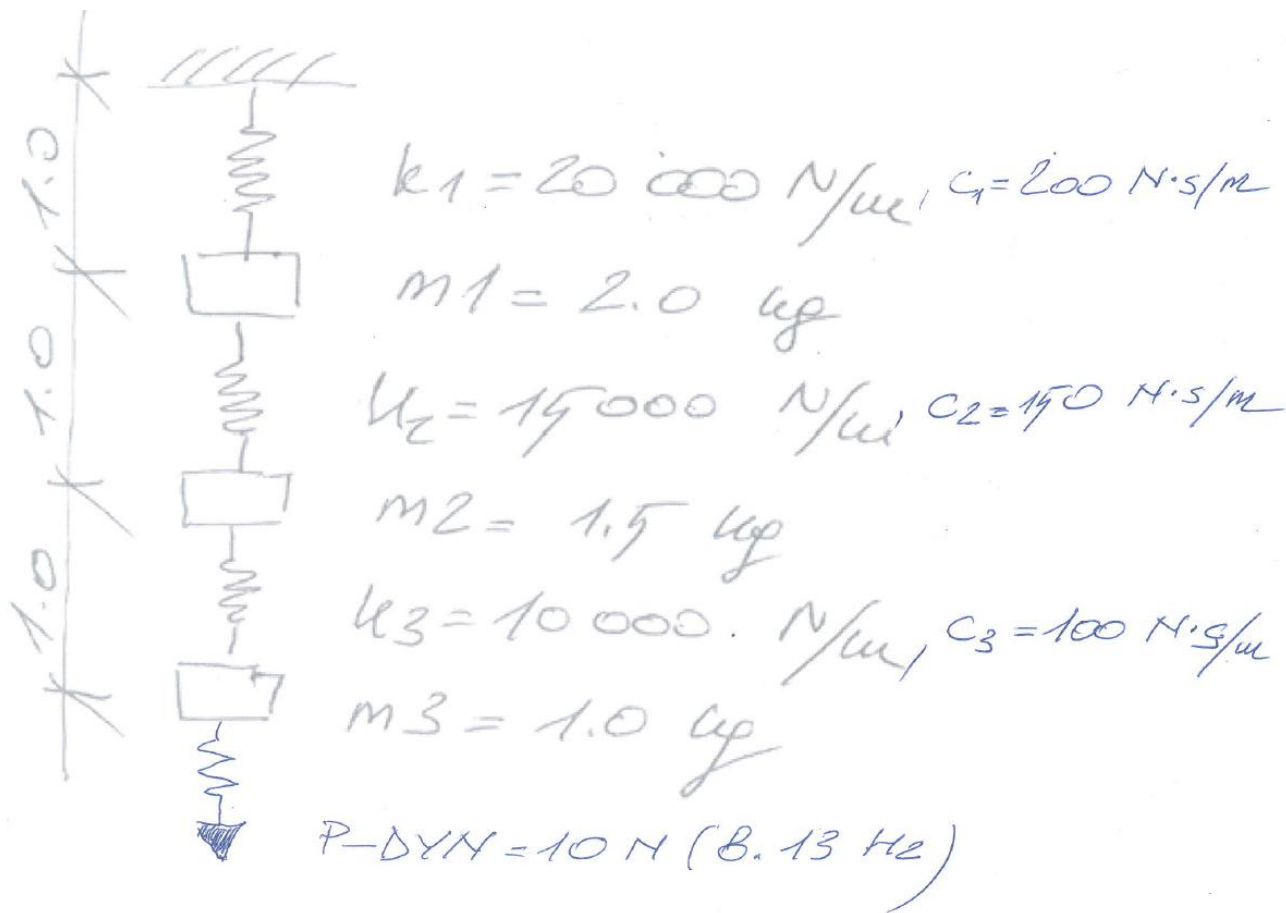 1.0
k1 = 20 000 N/m, c1 = 200 N·s/m
m1 = 2.0 kg
1.0
k2 = 15 000 N/m, c2 = 150 N·s/m
m2 = 1.5 kg
1.0
k3 = 10 000. N/m, c3 = 100 N·s/m
m3 = 1.0 kg
P-DYN = 10 N (8.13 Hz)